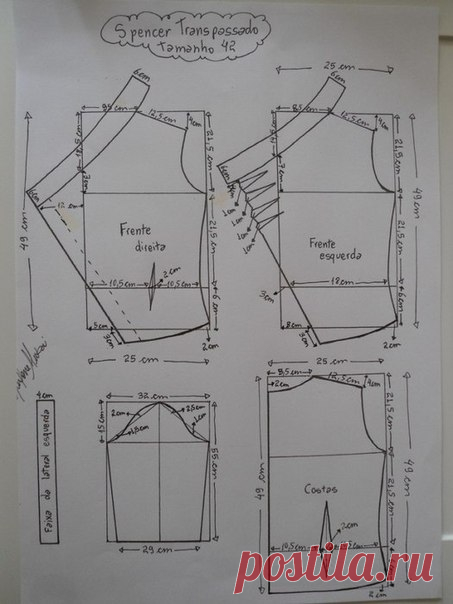 Spencer Transpassado
tamanho 42
6cm
8,5 cm
12,5cm
4cm
18,5 cm
21,5 cm
49 cm
6cm
12 cm
Frente
direita
21,5 cm
2cm
10,5 cm
10,5 cm
6cm
5 cm
3cm
2 cm
25 cm
25 cm
6cm
8,5 cm
12,5cm
4cm
7cm
21,5 cm
49 cm
1cm
1cm
1cm
1cm
Frente
esquerda
21,5 cm
18 cm
3cm
6cm
8 cm
2cm
25 cm
4cm
Faixa da lateral esquerda
32 cm
2cm
2,5cm
15 cm
1,5cm
1cm
55 cm
29 cm
25 cm
8,5 cm
2cm
12,5 cm
4cm
21,5 cm
49 cm
49 cm
Costas
21,5 cm
2cm
10,5 cm
2 cm
postila.ru